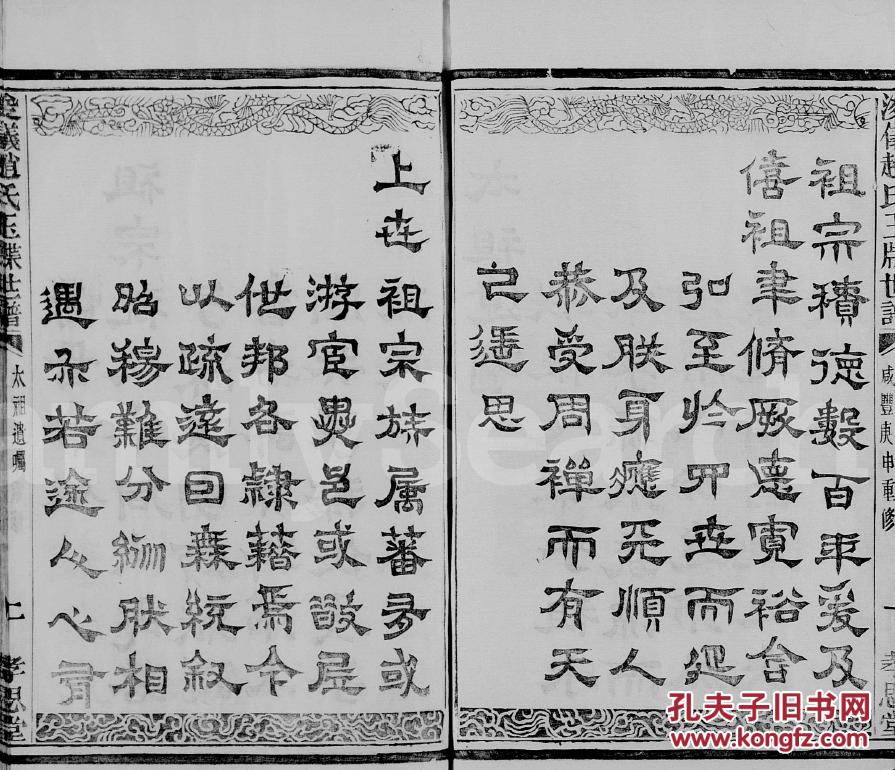 浚儀趙氏玉牒世譜
咸豐庚申重修
孝思堂
祖宗積德數百年爰及
僖祖聿脩厥德寬裕含
弘至於四世而延
及朕身應天順人
恭受周禪而有天
已還思
上世祖宗族屬蕃多或
游宦異邑或散居
他邦各隸籍焉今
以疏遠日無統叙
昭穆難分服相
遇不若途人心有
浚儀趙氏玉牒世譜
太祖遺囑
二
孝思堂
FamilySearch
孔夫子旧书网
www.kongfz.com